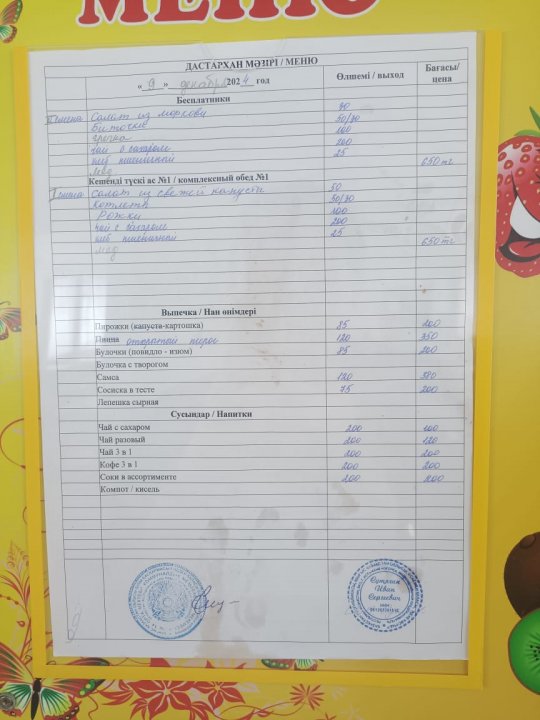 МЕНЮ
ДАСТАРХАН МӘЗІРІ / МЕНЮ
« 9 » декабря 2024 год
Өлшемі / выход
Бағасы/ цена
Бесплатники
II смена Салат из моркови 30
Биточки 50/30
гречка 100
чай с сахаром 200
хлеб пшеничный 25
650 тг
Кешенді түскі ас №1 / комплексный обед №1
I смена Салат из свежей капусты 50
Котлета 50/30
Рожки 100
чай с сахаром 200
хлеб пшеничный 25
650 тг
Выпечка / Нан өнімдері
Пирожки (капуста-картошка) 85 200
Пицца открытый пирог 120 350
Булочки (повидло - изюм) 85 200
Булочка с творогом
Самса 120
Сосиска в тесте 75 200
Лепешка сырная
Сусындар / Напитки
Чай с сахаром 200 100
Чай разовый 200 120
Чай 3 в 1 200 200
Кофе 3 в 1 200 200
Соки в ассортименте 200
Компот / кисель
Иван
Сергеевич